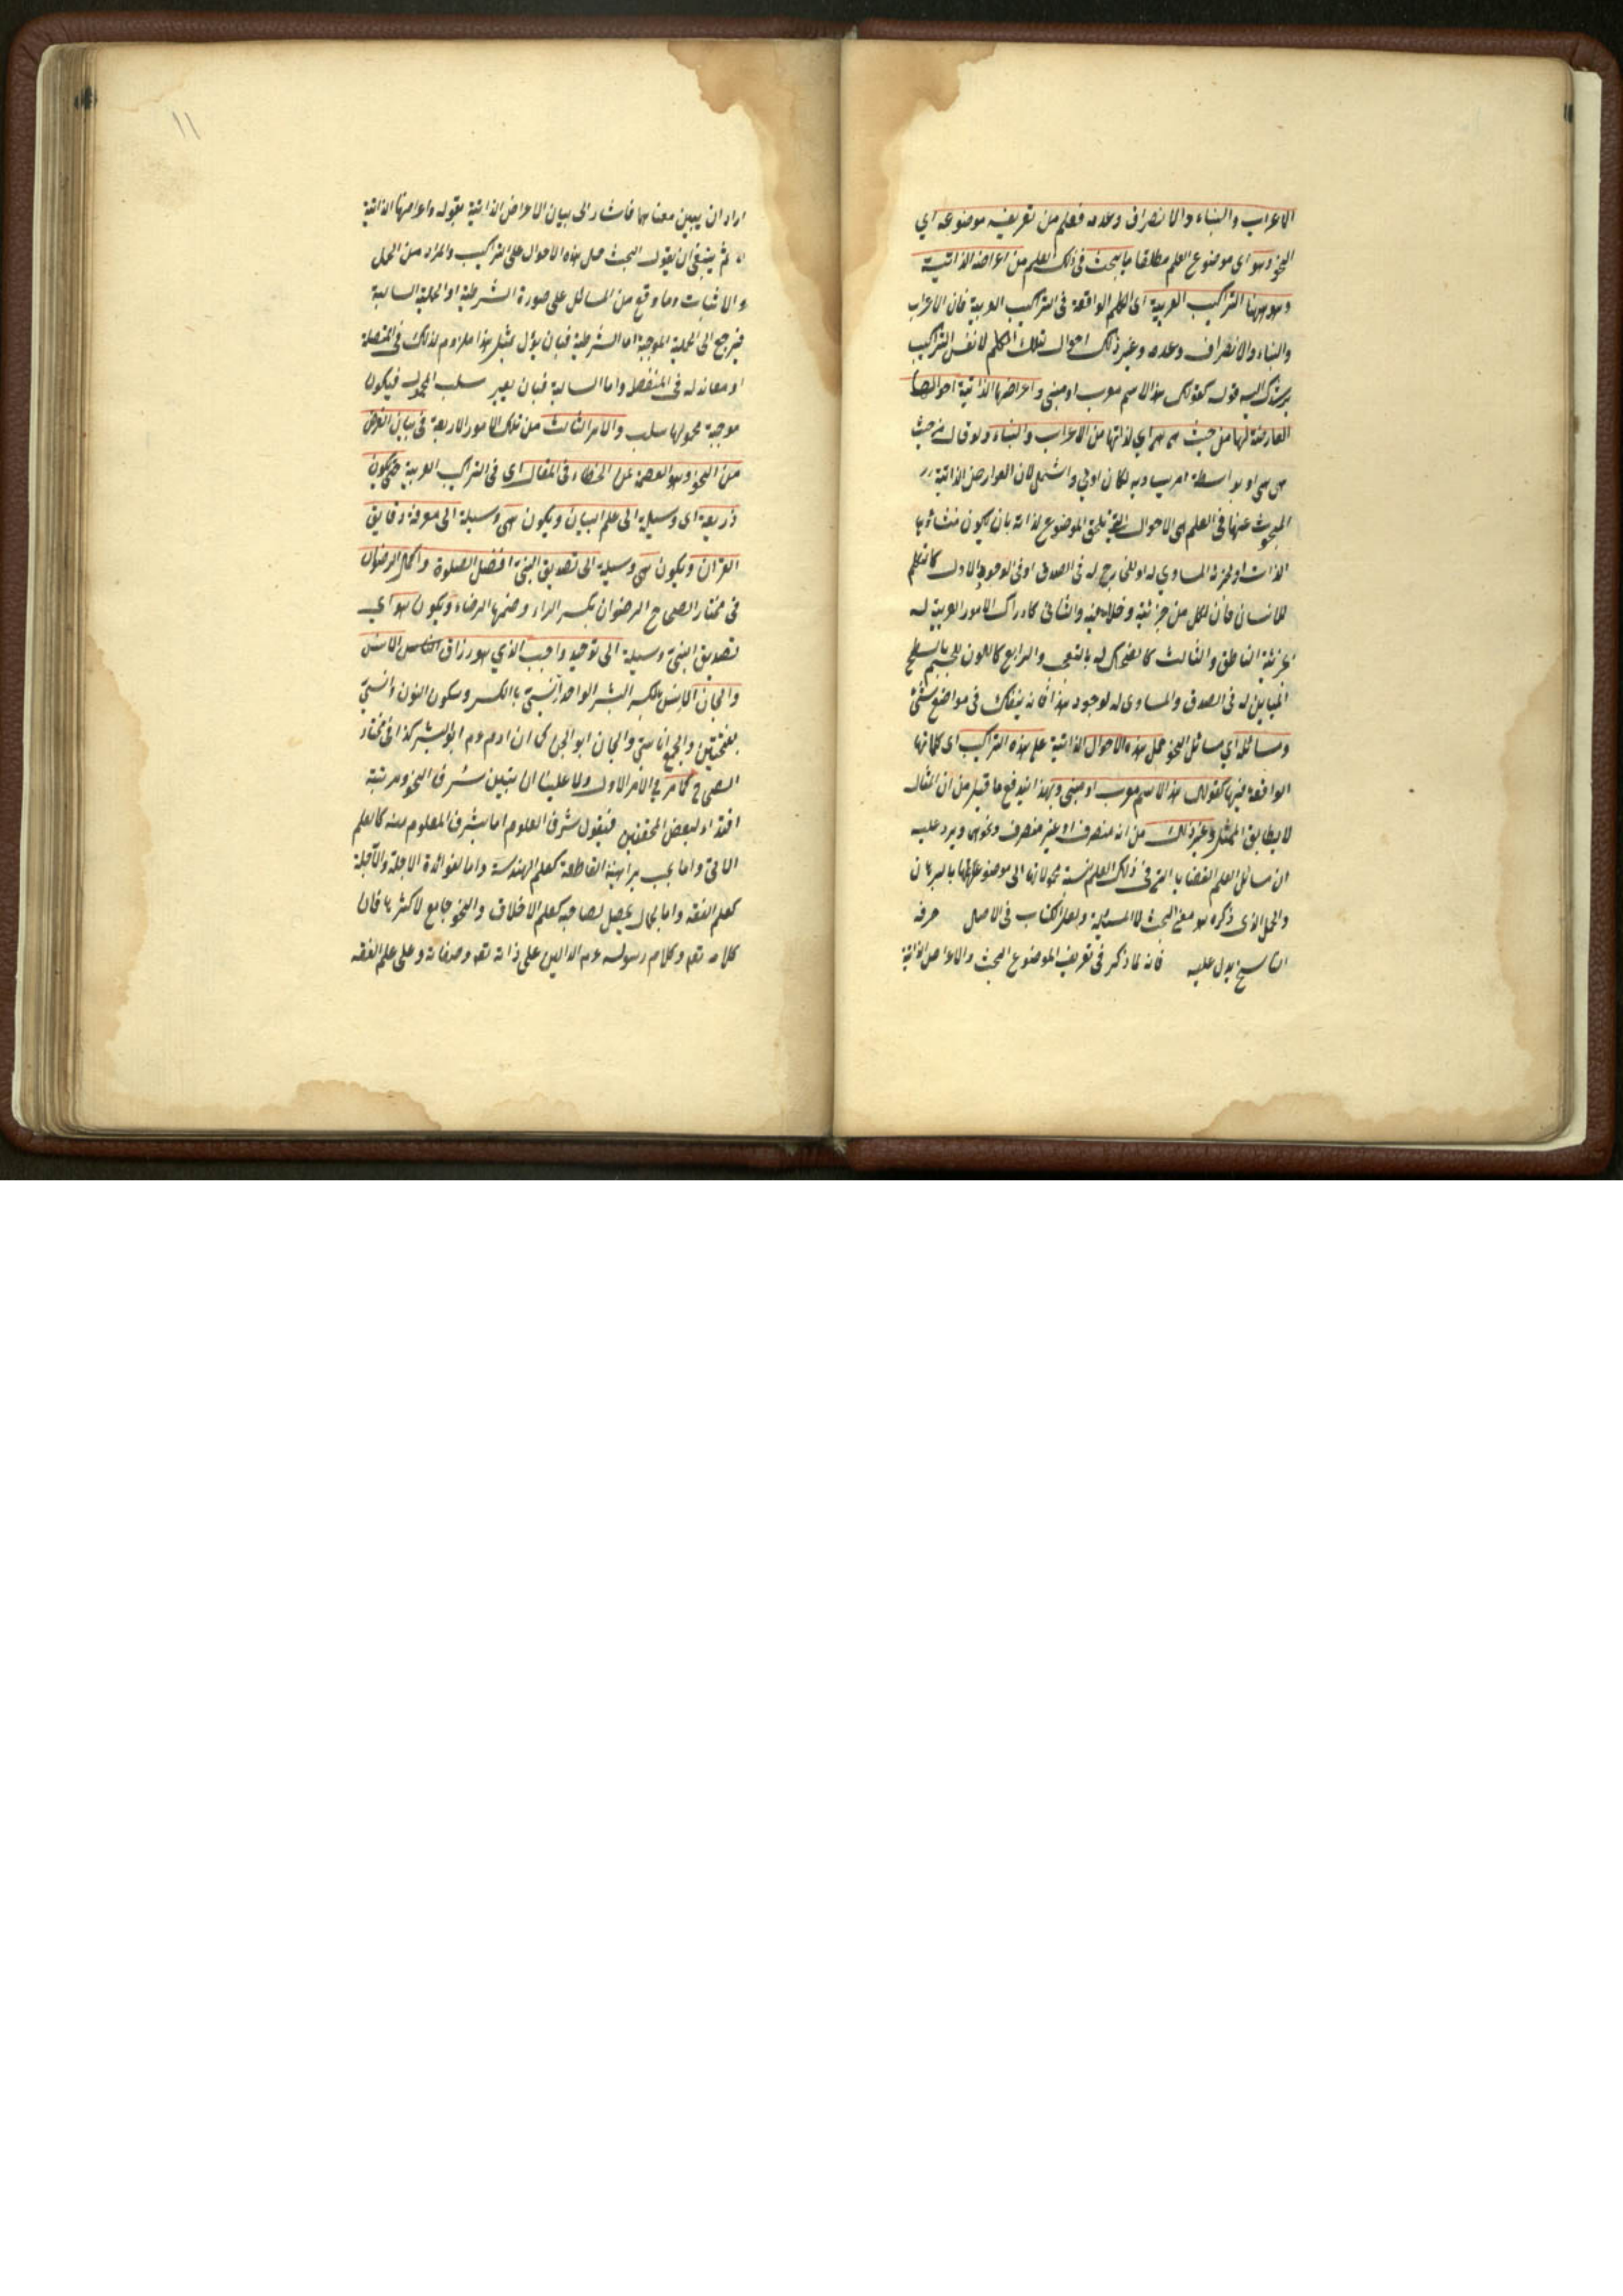 الاعراب والبناء والانصراف وعدمه فعلم من تعريفه موضوعه اي
النحو وهو اى موضوع العلم مطلقا ما يبحث فى ذلك العلم من اعراضه الذاتية
وهو ههنا التراكيب العربية اى الكلم الواقعة فى التراكيب العربية فان الاعراب
والبناء والانصراف وعدمه وغير ذلك احوال تلك الكلم لا نفس التراكيب
يرشدك اليه قوله كقولك هذا الاسم معرب او مبنى واعراضها الذاتية احوالها
العارضة لها من حيث هى هى اي لذاتها من الاعراب والبناء ولو قال من حيث
هى هى او بواسطة امر يساويه لكان اولى واشمل لان العوارض الذاتية
المبحوث عنها فى العلم هى الاحوال التى تلحق الموضوع لذاته بان يكون منشأوها
الذات او لجزئه المساوي له او لخارج له فى الصدق او فى الوجود الاول كالتعلم
للانسان فان لكل من جزئيه وخلا فيه والثانى كادراك الامور الغريبة له
لجزئه الناطق والثالث كالضحك له بالتعجب والرابع كاللون للجسم بالسطح
المباين له فى الصدق والمساوى له لوجود هذا فانه ينفعك فى مواضع شتى
ومسائله اي مسائل النحو حمل هذه الاحوال الذاتية على هذه التراكيب اى كلماتها
الواقعة فيها كقولك هذا الاسم معرب او مبنى وبهذا اندفع ما قيل من ان المثال
لا يطابق الممثل وغير ذلك من انه منصرف او غير منصرف ونحوهما ويرد عليه
ان مسائل العلم القضايا التى فى ذلك العلم نسبة محمولاتها الى موضوعاتها بالبرهان
والحمل الذى ذكره هو معنى البحث لا المسئلة ولعل الكتاب فى الاصل حرفه
الناسخ يدل عليه فانه لما ذكر فى تعريف الموضوع البحث والاعراض الذاتية
١١
اراد ان يبين معناهما فاشار الى بيان الاعراض الذاتية بقوله واعراضها الذاتية
ثم ينبغى ان يقول البحث حمل هذه الاحوال على التراكيب والمراد من الحمل
والاثبات وما وقع من المسائل على صورة الشرطية او الحملية السالبة
فيرجع الى الحملية الموجبة اما الشرطية فبان يؤل بمثل هذا ملزوم لذلك فى المتصلة
او معاند له فى المنفصلة واما السالبة فبان يعبر سلب المحمول فيكون
موجبة محمولها سلب والامر الثالث من تلك الامور الاربعة فى بيان الغرض
من النحو وهو العصمة عن الخطاء فى المقال اى فى التراكيب العربية حتى يكون
ذريعة اى وسيلة الى علم البيان ويكون هى وسيلة الى معرفة دقايق
القرآن ويكون هى وسيلة الى تصديق النبى افضل الصلوة واكمل الرضوان
فى مختار الصحاح الرضوان بكسر الراء وضمها الرضاء ويكون هو اي
تصديق النبى وسيلة الى توحيد واجب الذي هو رزاق الانس
والجان الانس بالكسر البشر الواحد انسى بالكسر وسكون النون وانسى
بفتحتين والجمع اناسى والجان ابو الجن كما ان ادم عم ابو البشر كذا فى مختار
الصحاح كما مر فى الامر الاول ولما علينا ان نبين شرف النحو ومرتبته
اقتداء لبعض المحققين فنقول شرف العلوم اما بشرف المعلوم منه كالعلم
الباقى واما بحسب براهينه القاطعة كعلم الهندسة واما لفوائده العاجلة والآجلة
كعلم الفقه واما بكمال يحصل لصاحبه كعلم الاخلاق والنحو جامع لاكثرها فان
كلامه تعم وكلام رسوله عم الدالين على ذاته تعم وصفاته وعلى علم الفقه